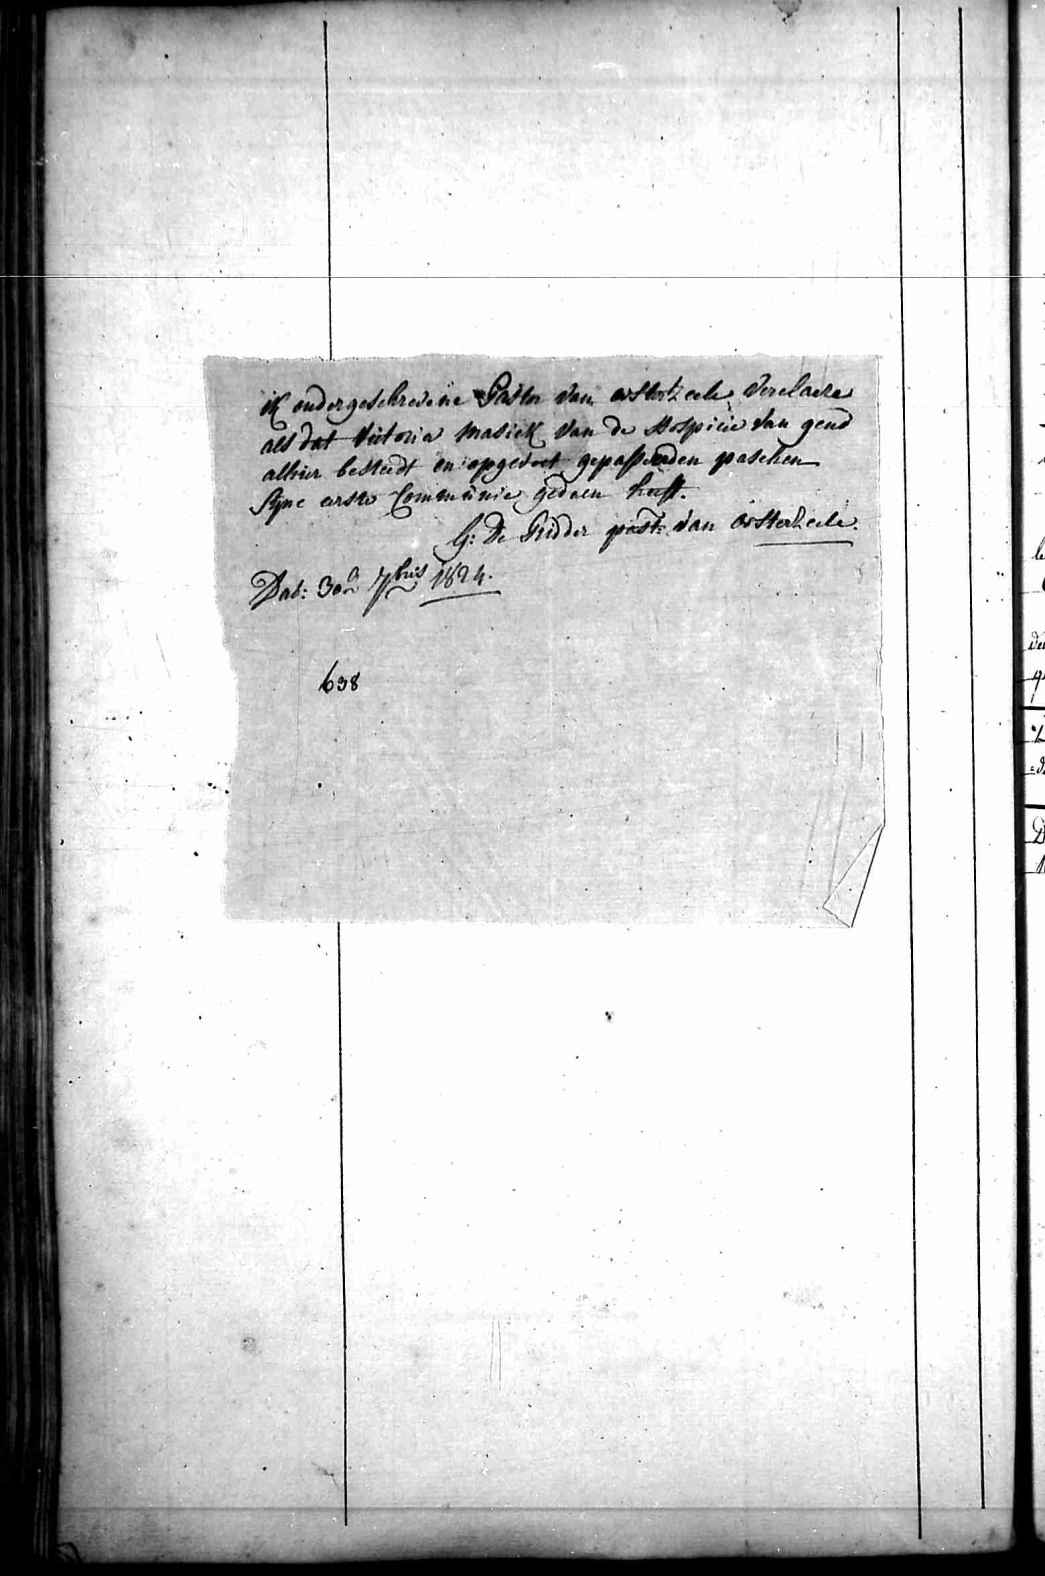 ik ondergeschrevene Pastor van oosterzeele verclaere
als dat Victoria Masiek van de Hospicie van gend
alhier besteedt en opgevoet gepasseerden paschen
syne eerste Communie gedaen heeft.
G: De Ridder past: van oosterzeele.
Dab: 30a 7bris 1824.
638